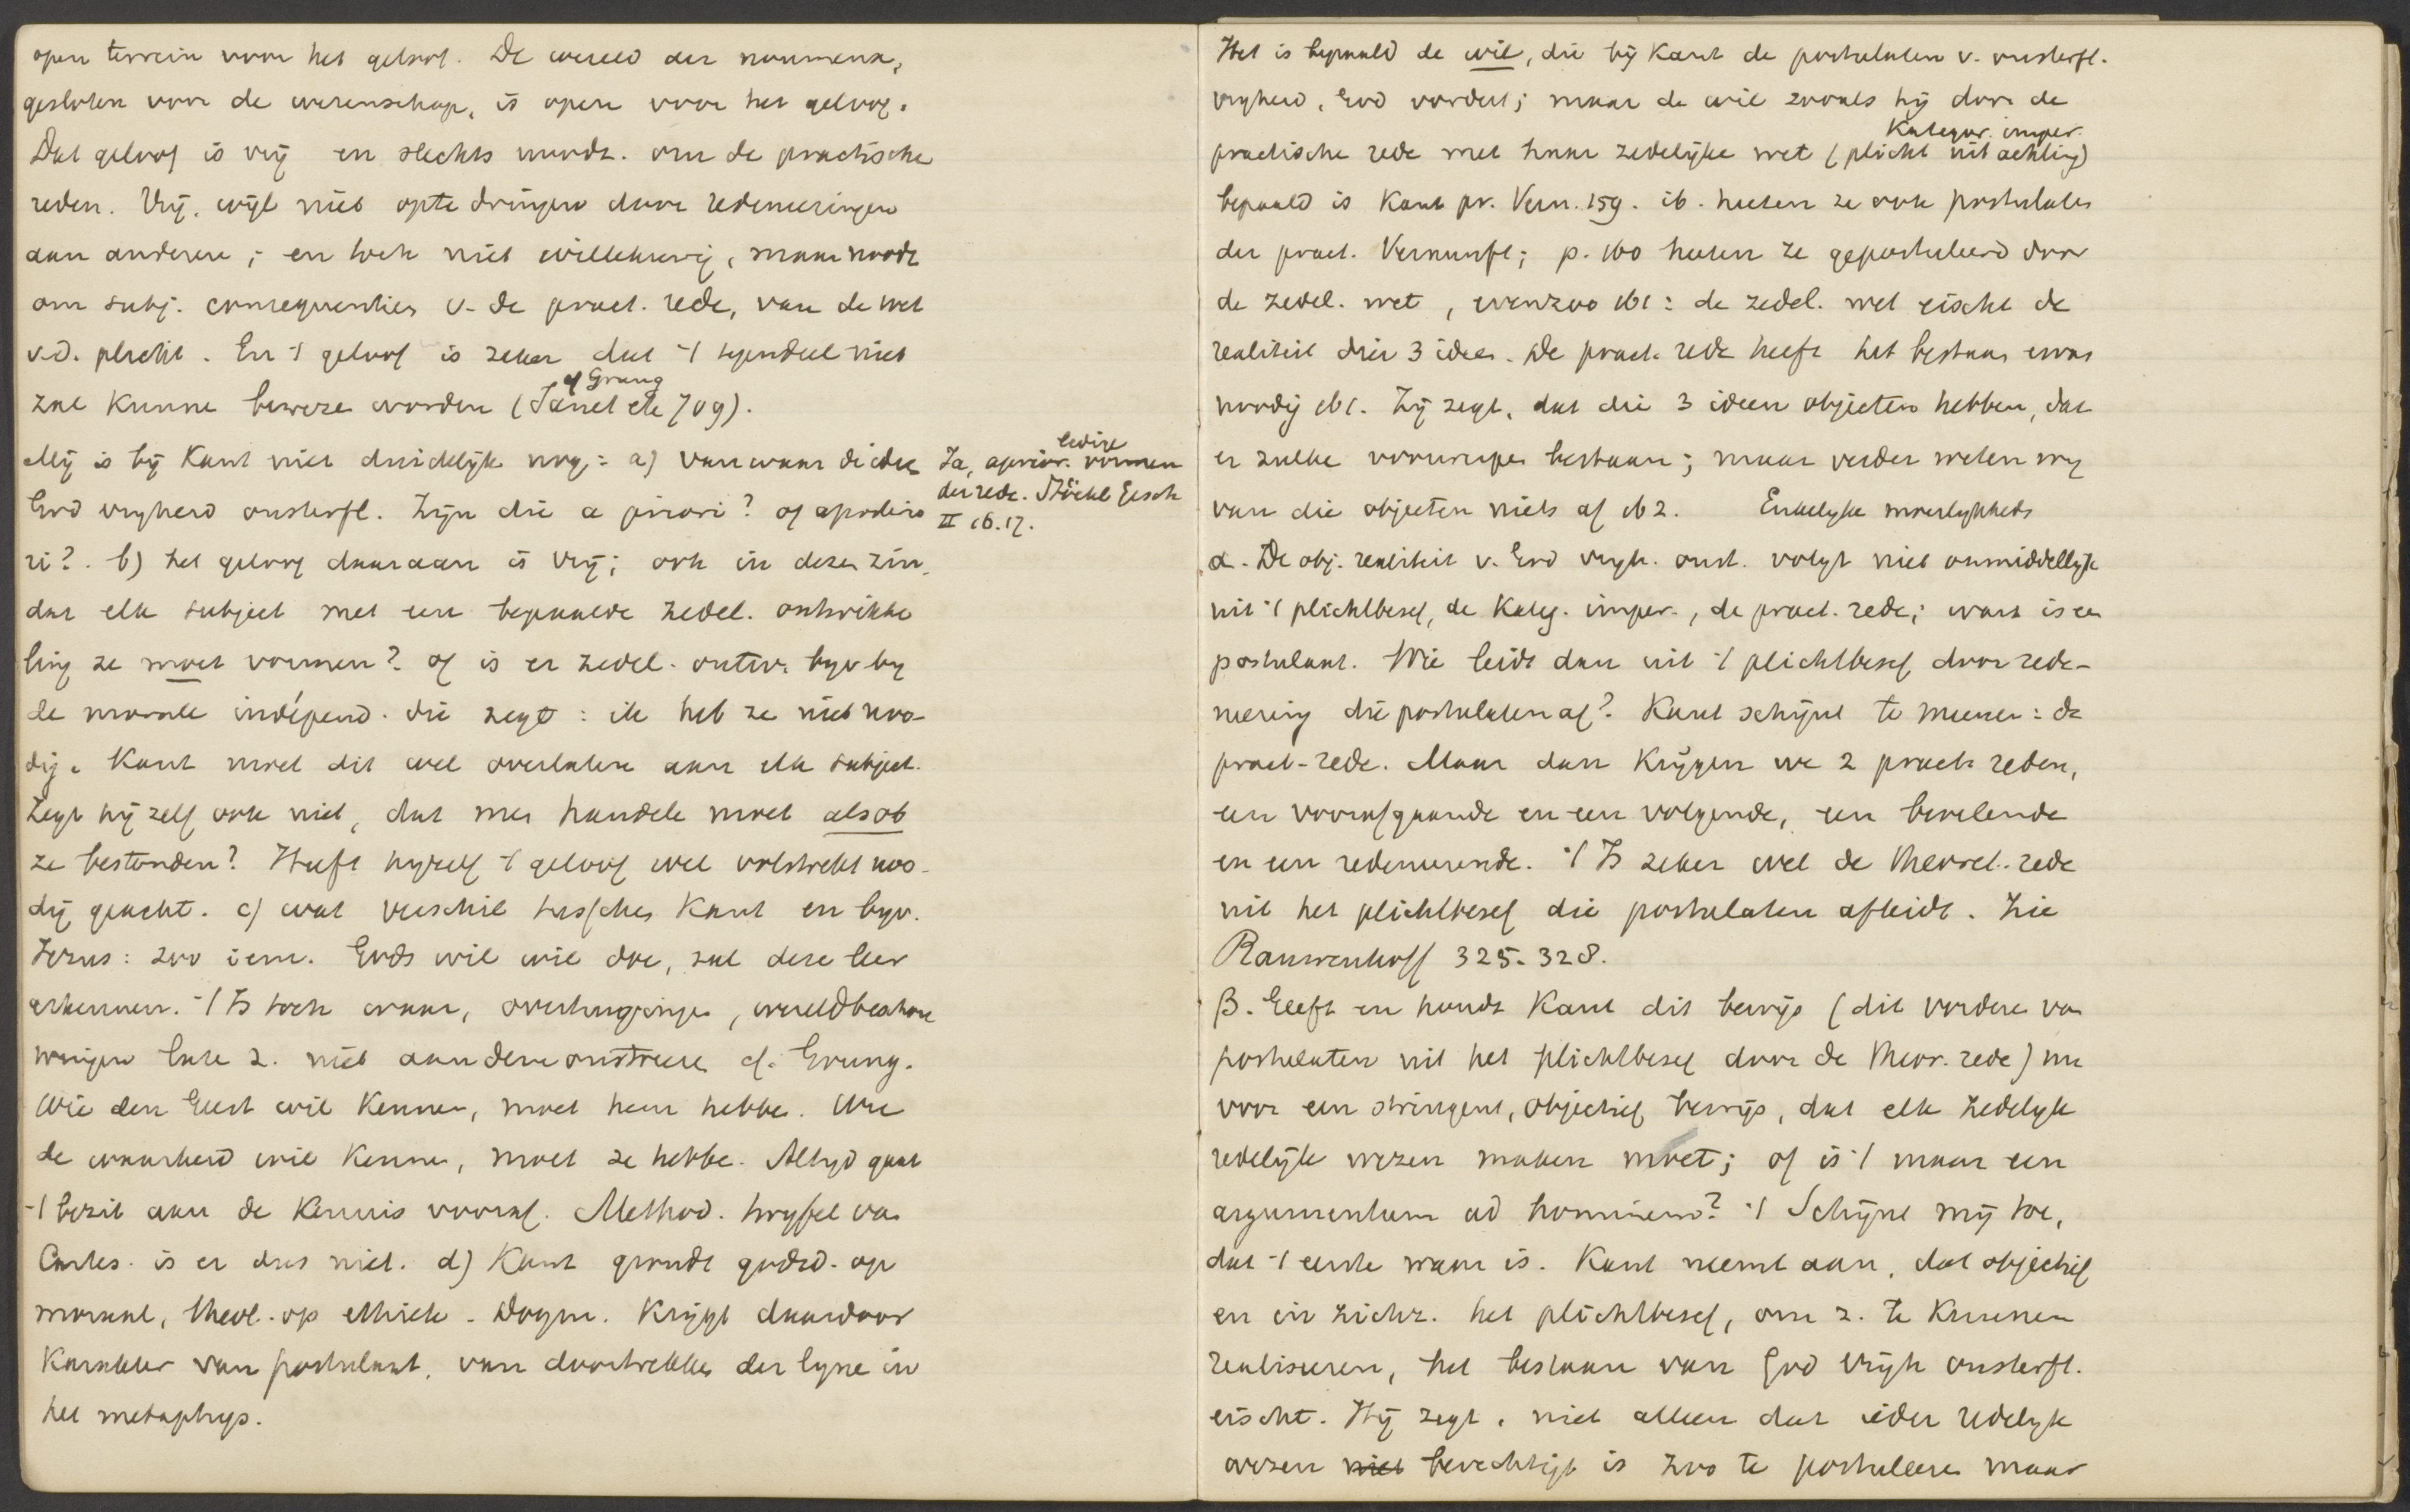 open terrein voor het geloof. De wereld der noumena,
gesloten voor de wetenschap, is open voor het geloof.
Dat geloof is vrij en slechts noodz. om de practische
reden. Vrij, wijl niet opte dringen door redeneeringen
aan anderen; en toch niet willekeurig, maar noodz
om subj. consequenties v. de pract. rede, van de wet
v.d. plicht. En 't geloof is zeker dat 't tegendeel niet
cf Grung
zal kunne beweze worden (Janet etc 709).
Mij is bij Kant niet duidelijk nog: a) van waar die idee
God vrijheid onsterfl. Zijn die a priori? of aposterio
ri? . b) het geloof daaraan is vrij; ook in dezen zin,
dat elk subject met een bepaalde zedel. ontwikke
ling ze moet vormen? of is er zedel. ontw. bijv. by
de morale indépend. die zegt: ik heb ze niet noo-
dig. Kant moet dit wel overlaten aan elk subject.
Zegt hij zelf ook niet, dat men handele moet alsob
ze bestonden? Heeft hijzelf 't geloof wel volstrekt noo-
dig geacht. c) wat verschil tusschen Kant en bijv.
Jezus: zoo iem. Gods wil wil doe, zal deze leer
erkennen. 't Is toch waar, overtuigingen, wereldbeschou
wingen late z. niet aandemonstreere cf. Grung.
Wie den Geest wil kennen, moet hem hebbe. Wie
de waarheid wil kennen, moet ze hebbe. Altyd gaat
't bezit aan de kennis vooraf. Method. twyfel van
Cartes. is er dus niet. d) Kant grondt godsd. op
moraal, theol. op ethiek. Dogm. krijgt daardoor
karakter van postulaat, van doortrekken der lyne in
het metaphys.
ledige
Ja, aprior. vormen
der rede. Stöckl Gesch
II 16.17.
Het is bepaald de wil, die bij Kant de postulaten v. onsterfl.
vryheid, God vordert; maar de wil zooals hij door de
Kategor. imper.
practische rede met haar zedelijke wet (plicht uit achting)
bepaald is Kant pr. Vern. 159. ib. heeten ze ook postulaten
der pract. Vernunft; p. 160 heeten ze gepostuleerd door
de zedel. wet, evenzoo 161: de zedel. wet eischt de
realiteit dier 3 ideen. De pract. rede heeft het bestaan ervan
noodig 161. Zij zegt, dat die 3 ideen objecten hebben, dat
er zulke voorwerpen bestaan; maar verder weten wy
van die objecten niets af 162. Enkelyke moeilykheds
α. De obj. realiteit v. God vryh. onst. volgt niet onmiddellijk
uit 't plichtbesef, de Kateg. imper., de pract. rede; want is een
postulaat. Wie leidt dan uit 't plichtbesef door rede-
neering die postulaten af? Kant schijnt te meenen: de
pract-rede. Maar dan krijgen we 2 pract. reden,
een voorafgaande en een volgende, een bevelende
en een redeneerende. 't Is zeker wel de theoret. rede
uit het plichtbesef die postulaten afleidt. Zie
Rauwenhoff 325-328.
β. Geeft en houdt Kant dit bewijs (dit vorderen van
postulaten uit het plichtbesef door de theor. rede) nu
voor een stringent, objectief bewijs, dat elk zedelyk
redelijk wezen maken moet; of is 't maar een
argumentum ad hominem? 't Schijnt mij toe,
dat 't eerste waar is. Kant neemt aan, dat objectief
en in zichz. het plichtbesef, om z. te kunnen
realiseeren, het bestaan van God vrijh onsterfl.
eischt. Hij zegt, niet alleen dat ieder redelyk
wezen niet berechtigt is zoo te postuleere maar